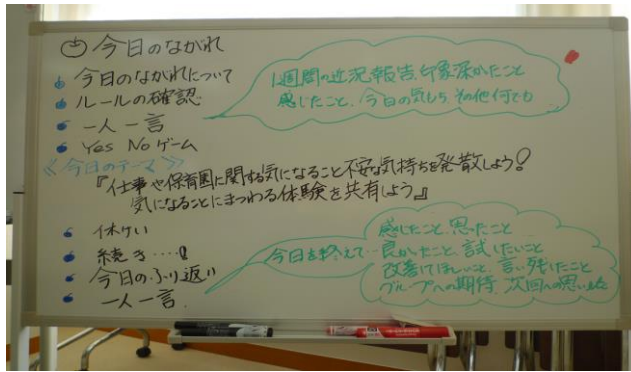 今日のながれ
今日のながれについて
ルールの確認
一人一言
1週間の近況報告、印象深かったこと
感じたこと、今日の気もち、その他何でも
Yes Noゲーム
≪今日のテーマ≫
『仕事や保育園に関する気になること不安な気持ちを発散しよう!
気になることにまつわる体験を共有しよう』
休けい
続き・・・・
今日のふり返り
一人一言
今日を終えて…
感じたこと、思ったこと
良かったこと、試したいこと
改善してほしいこと、言い残したこと
グループへの期待、次回への思い